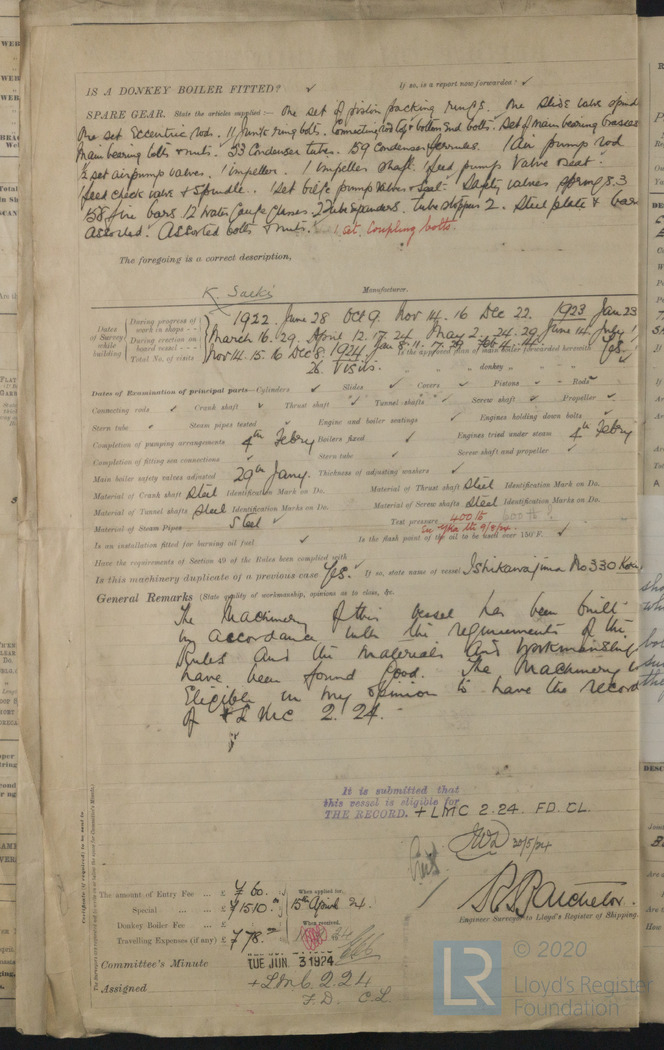 IS A DONKEY BOILER FITTED? ✓ If so, is a report now forwarded? ✓
SPARE GEAR. State the articles supplied:— One set of piston packing rings. One slide valve spind
One set Eccentric rod. 11 junk ring bolts. Connecting rod top & bottom end bolts. Set of main bearing brasses
Main bearing bolts & nuts. 33 Condenser tubes. 159 Condenser ferrules. 1 air pump rod
½ set air pump valves. 1 impeller. 1 impeller shaft. feed pump valve & seat.
1 feed check valve & Spindle. 1 Set bilge pump valves & seat. Safety valves springs. 3
158 fire bars 12 Water Gauge Glasses. 2 tube expanders. tube stoppers 2. Steel plate & bars
assorted. Assorted bolts & nuts. 1 at. coupling bolts.
The foregoing is a correct description,
K. Sacki Manufacturer.
Dates of Survey while building
During progress of work in shops - - 1922. June 28 Oct 9. Nov 14. 16 Dec 22. 1923 Jan 23
During erection on board vessel - - - March 16. 29. April 12. 17. 24. May 2. 24. 29. June 14. July 1
Total No. of visits Nov 14. 15. 16 Dec 8. 1924 Jan 8. 11. 17. 29. Feb 4. 14. Is the approved plan of main boiler forwarded herewith Yes.
26. Visits. " " " donkey " " "
Dates of Examination of principal parts—Cylinders ✓ Slides ✓ Covers ✓ Pistons ✓ Rods ✓
Connecting rods ✓ Crank shaft ✓ Thrust shaft ✓ Tunnel shafts ✓ Screw shaft ✓ Propeller ✓
Stern tube ✓ Steam pipes tested ✓ Engine and boiler seatings ✓ Engines holding down bolts ✓
Completion of pumping arrangements 4th Febry Boilers fixed ✓ Engines tried under steam 4th Febry
Completion of fitting sea connections ✓ Stern tube ✓ Screw shaft and propeller ✓
Main boiler safety valves adjusted 29th Jany. Thickness of adjusting washers ✓
Material of Crank shaft Steel Identification Mark on Do. Material of Thrust shaft Steel Identification Mark on Do.
Material of Tunnel shafts Steel Identification Marks on Do. Material of Screw shafts Steel Identification Marks on Do.
Material of Steam Pipes Steel ✓ Test pressure 400 lb 600 lb ?
Is an installation fitted for burning oil fuel ✓ Is the flash point of the oil to be used over 150°F. ✓
Have the requirements of Section 49 of the Rules been complied with ✓
Is this machinery duplicate of a previous case Yes. If so, state name of vessel Ishikawajima No 330
General Remarks (State quality of workmanship, opinions as to class, &c.
The Machinery of this vessel has been built
in accordance with the requirements of the
Rules and the materials and workmanship
have been found good. The Machinery is
Eligible in my opinion to have the record
of + L M C 2. 24.
It is submitted that
this vessel is eligible for
THE RECORD. + LMC 2.24. FD. CL.
JWD 20/5/24
Certificate (if required) to be sent to
The amount of Entry Fee ... £ ¥ 60. When applied for,
Special ... ... £ ¥1510. 15th April 24.
Donkey Boiler Fee ... £ When received,
Travelling Expenses (if any) £ ¥ 78.
Engineer Surveyor to Lloyd's Register of Shipping.
Committee's Minute TUE JUN. 3 1924
Assigned + LMC 2.24
F.D. CL
LR © 2020
Lloyd's Register
Foundation